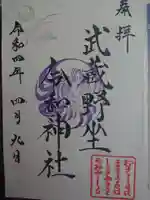 奉拝
武蔵野坐
令和神社
令和四年 四月 九日